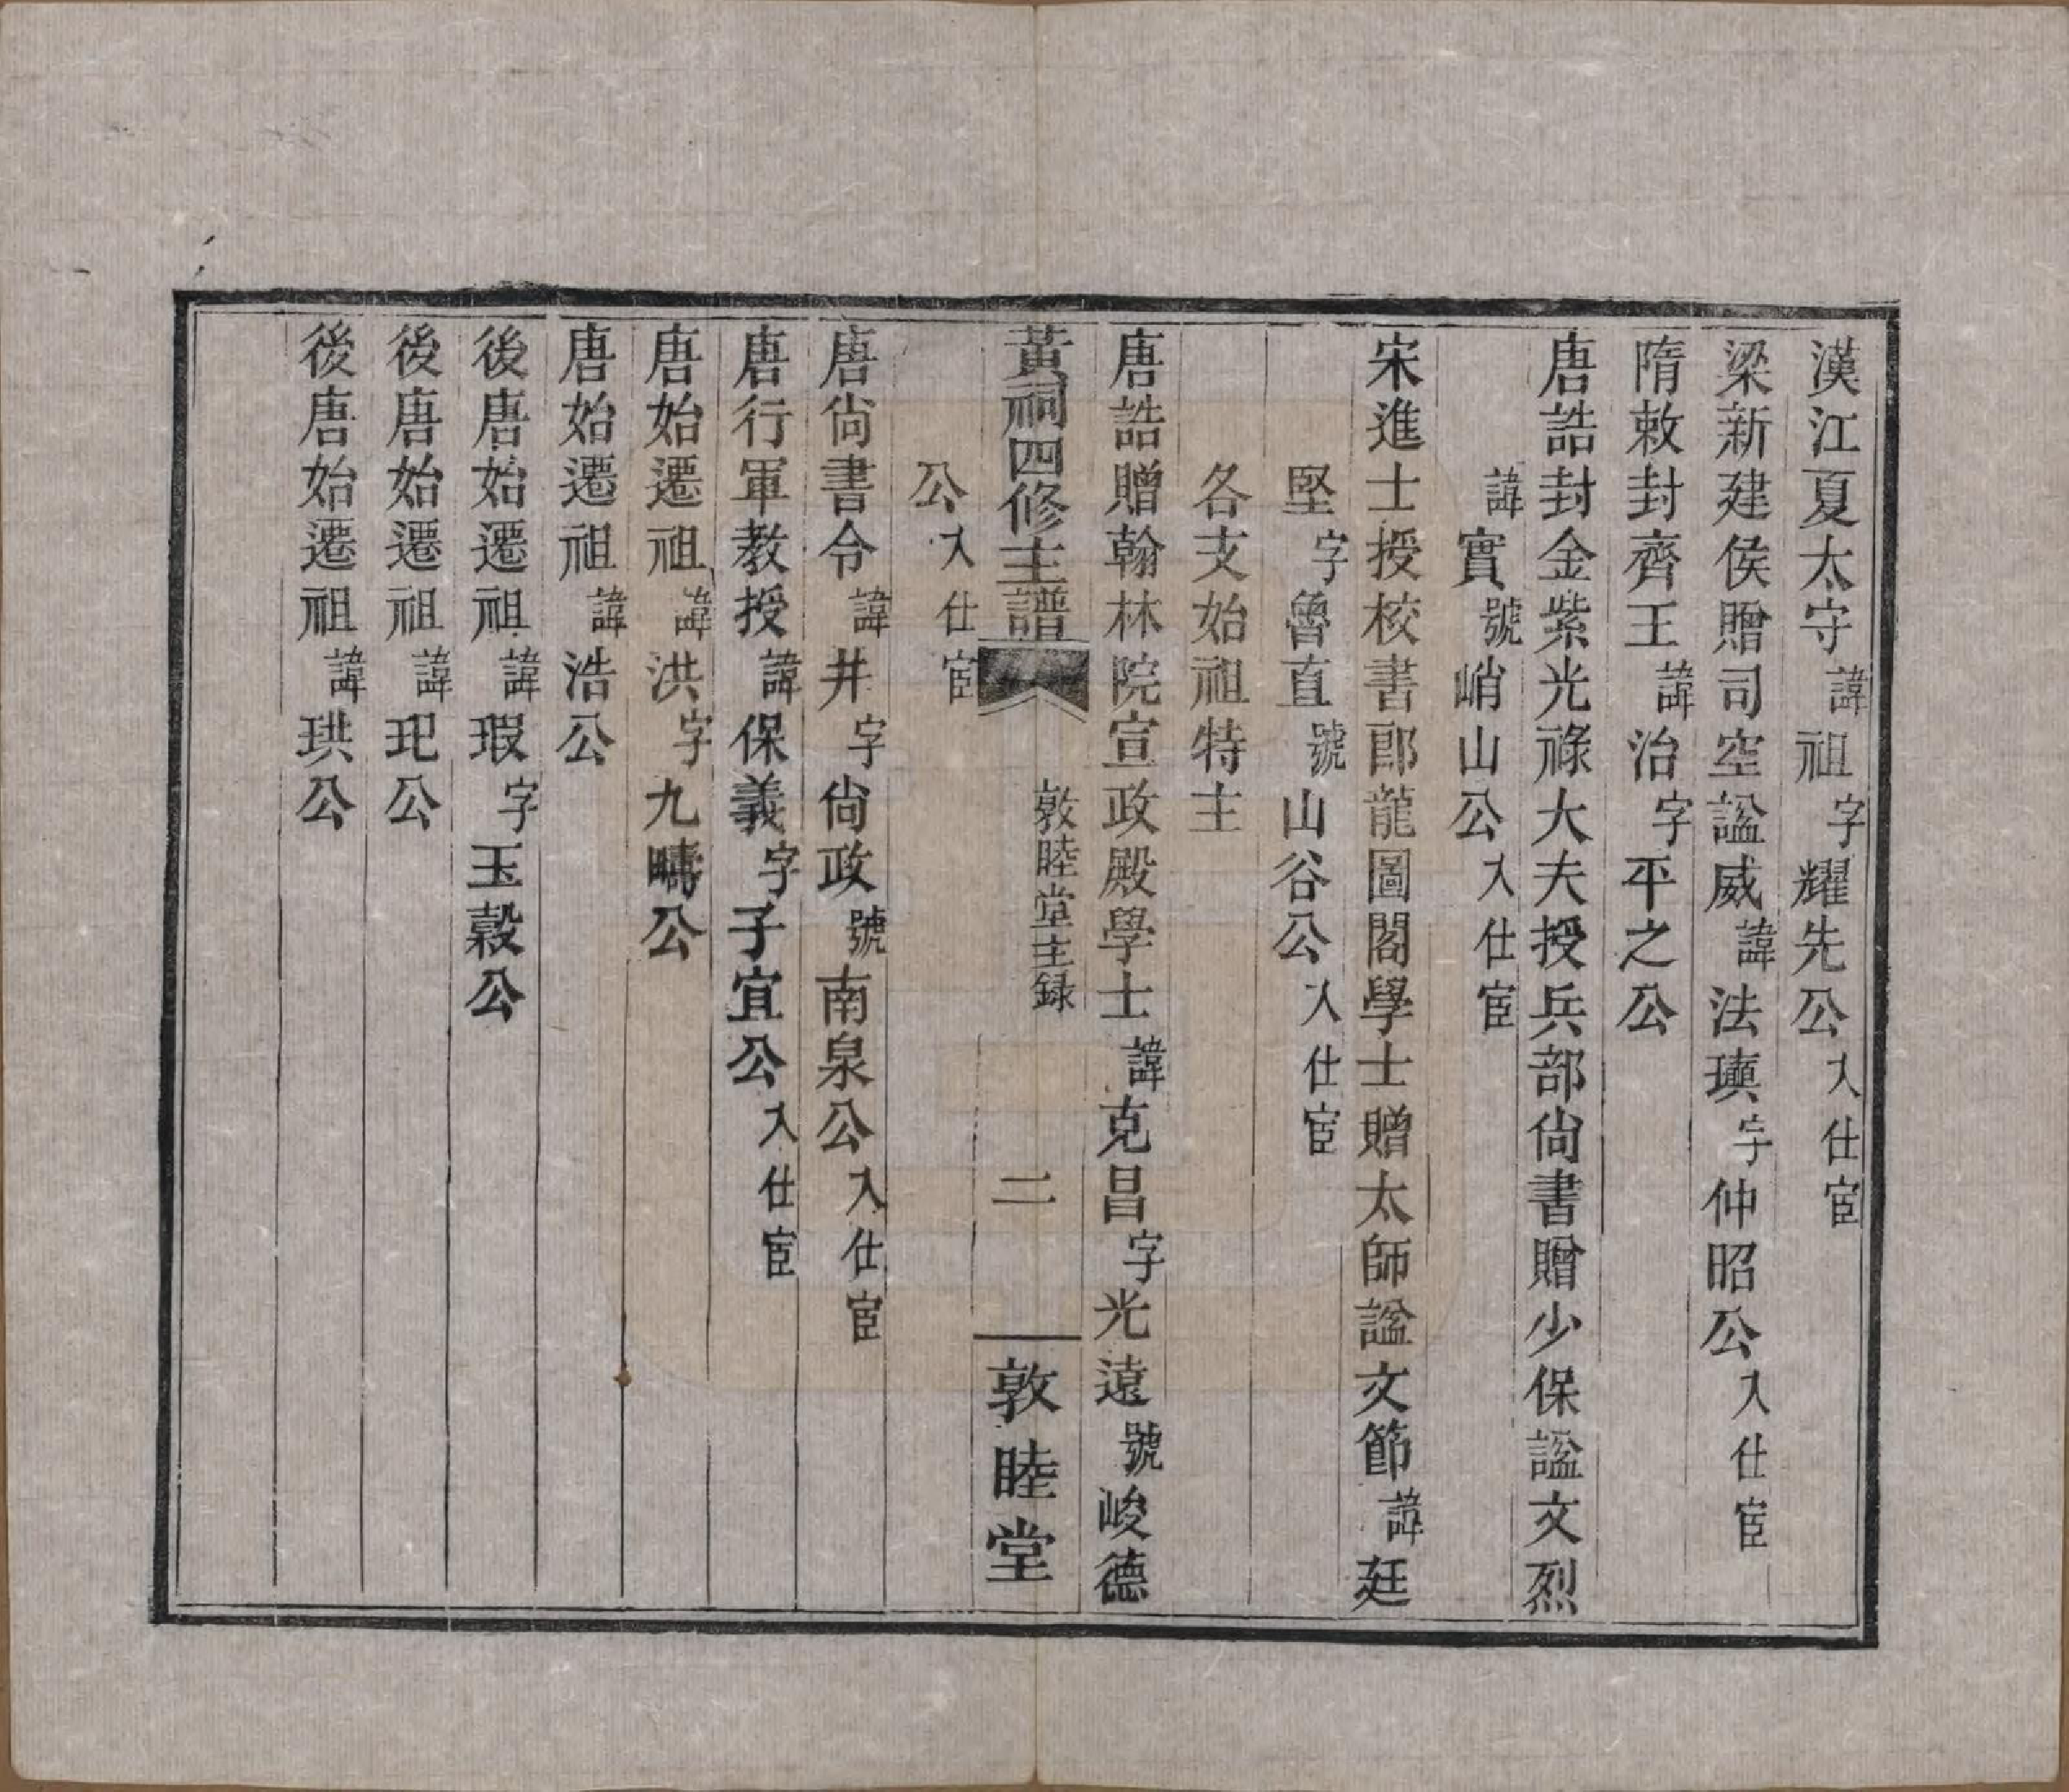 漢江夏太守諱祖字耀先公入仕宦
梁新建侯贈司空諡威諱法𤩽字仲昭公入仕宦
隋敕封齊王諱治字平之公
唐誥封金紫光祿大夫授兵部尙書贈少保諡文烈
諱實號峭山公入仕宦
宋進士授校書郎龍圖閣學士贈太師諡文節諱廷
堅字魯直號山谷公入仕宦
各支始祖特主
唐誥贈翰林院宣政殿學士諱克昌字光遠號峻德
黃祠四修主譜 敦睦堂主録 二 敦睦堂
公入仕宦
唐尙書令諱井字尙政號南泉公入仕宦
唐行軍教授諱保義字子宜公入仕宦
唐始遷祖諱洪字九疇公
唐始遷祖諱浩公
後唐始遷祖諱瑕字玉穀公
後唐始遷祖諱玘公
後唐始遷祖諱珙公